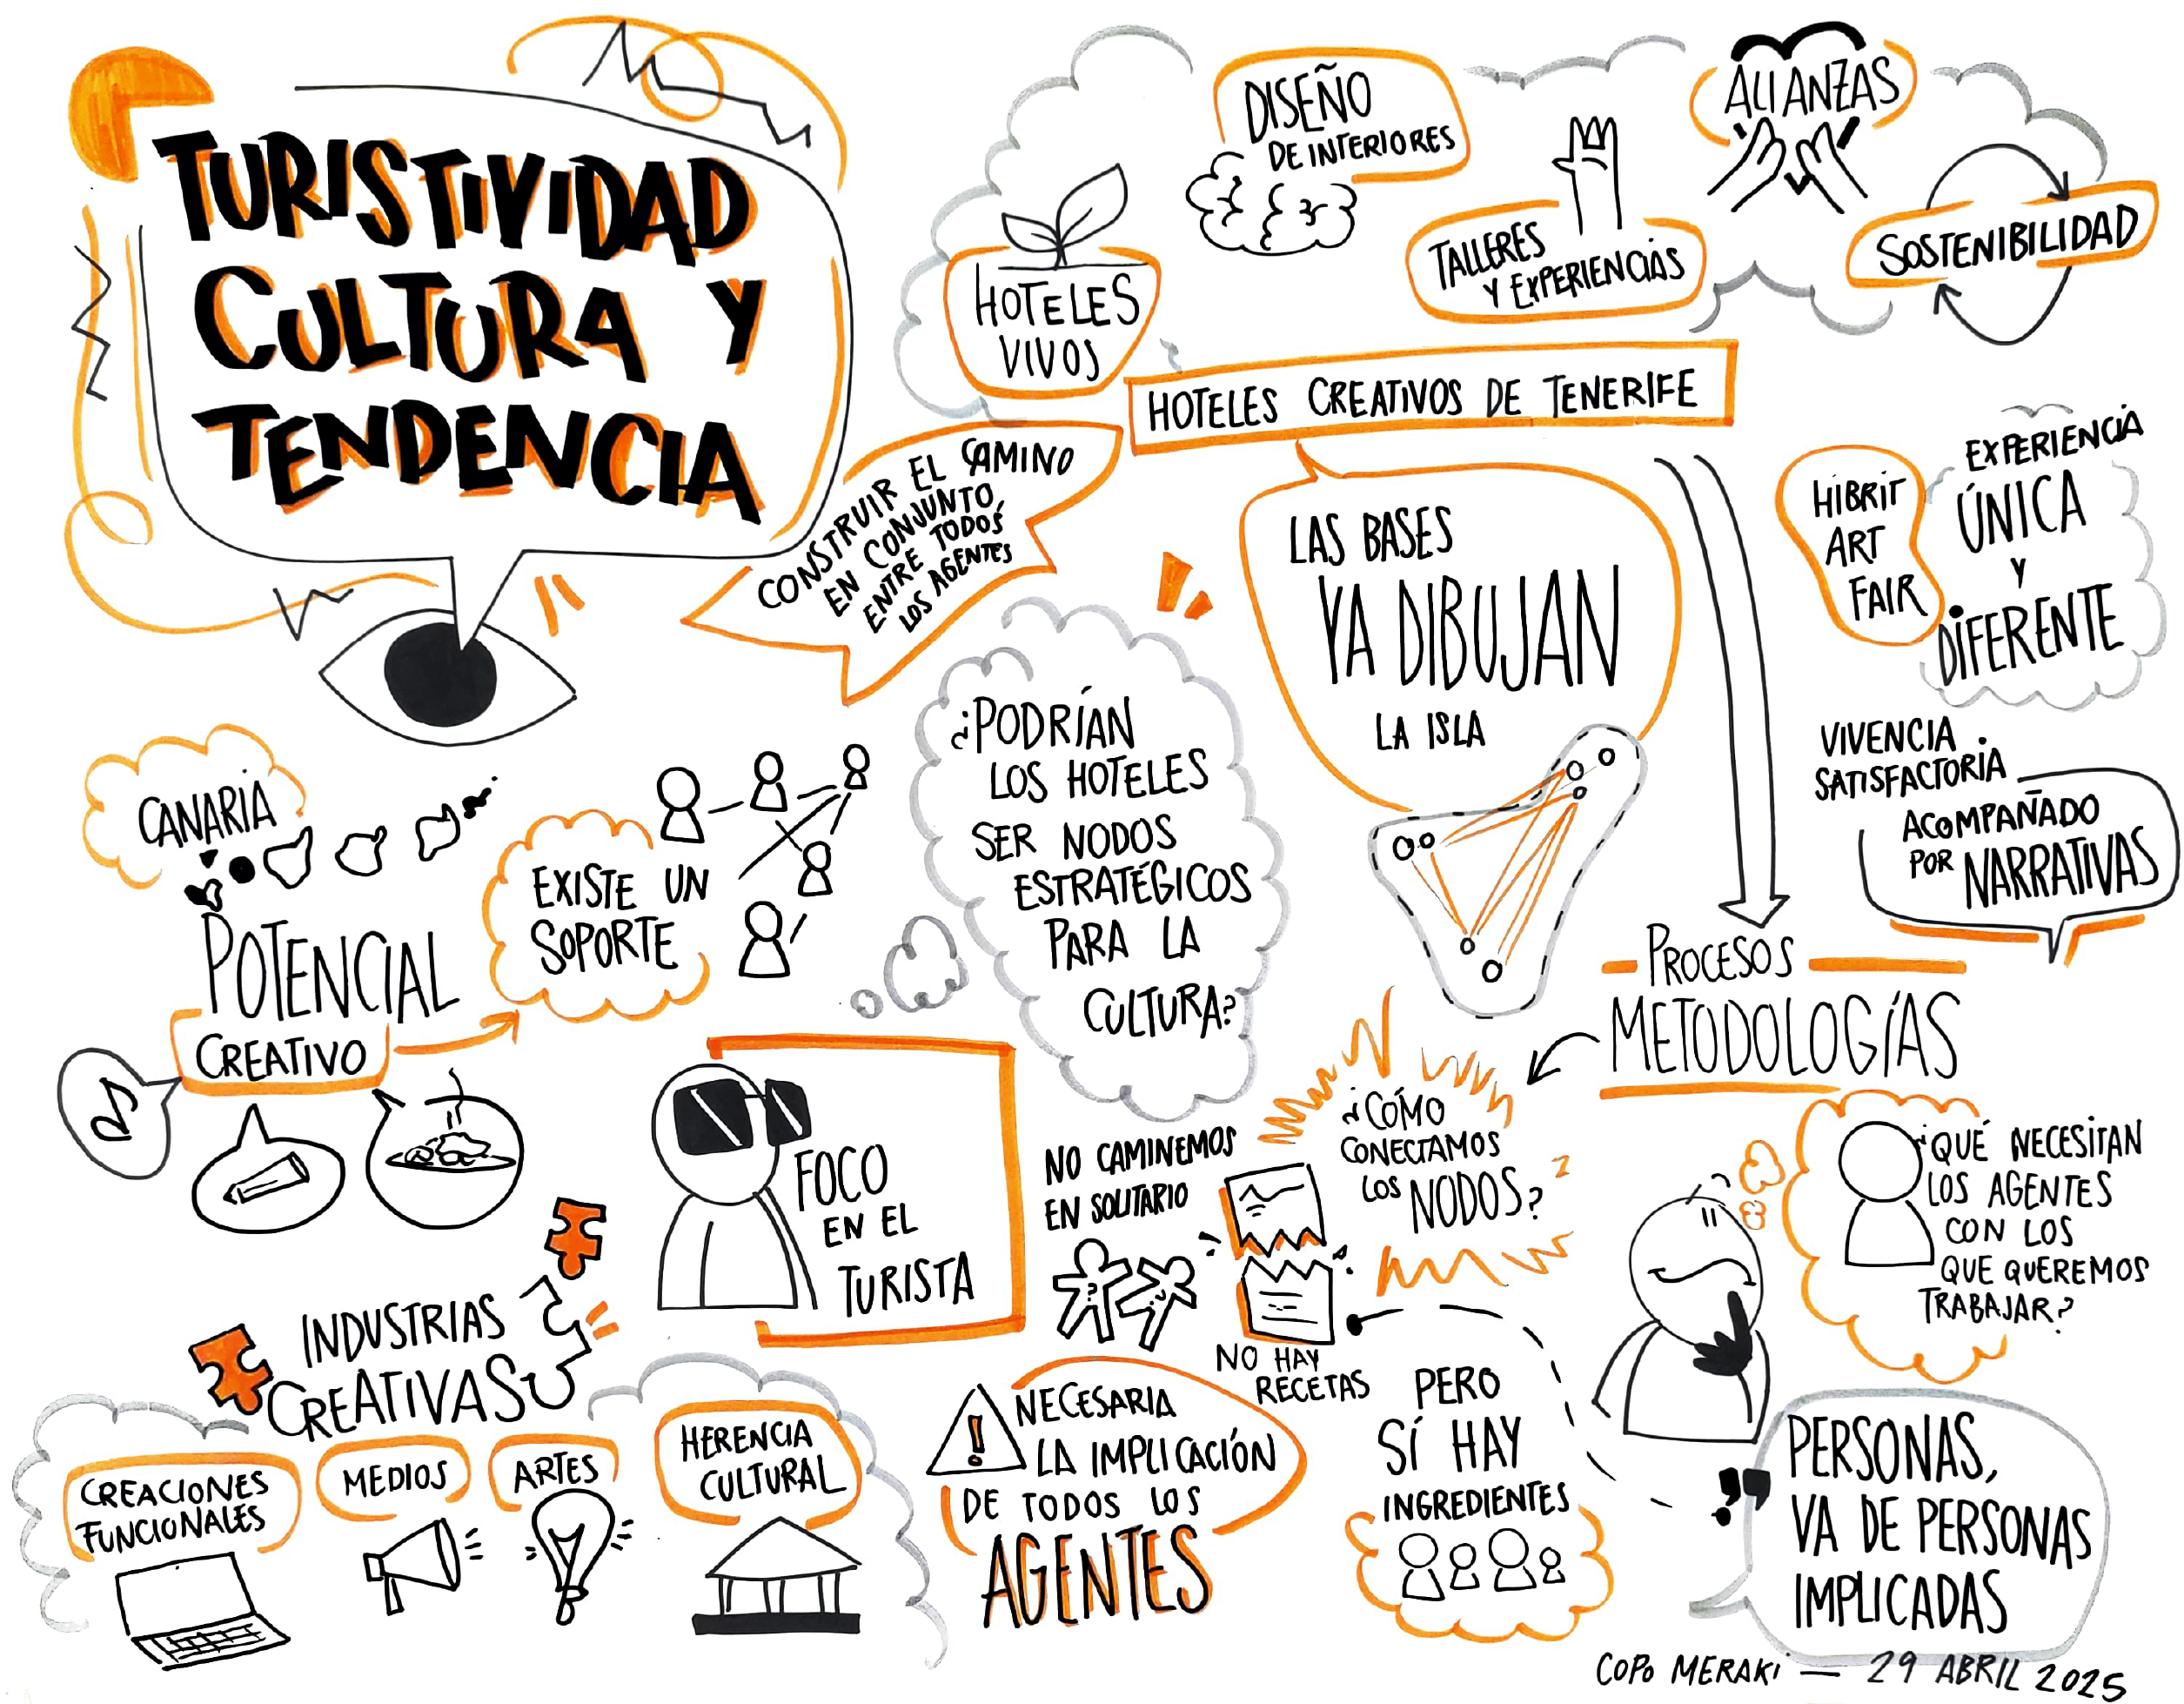 TURISTIVIDAD
CULTURA Y
TENDENCIA
HOTELES
VIVOS
DISEÑO
DE INTERIORES
TALLERES
Y EXPERIENCIAS
ALIANZAS
SOSTENIBILIDAD
HOTELES CREATIVOS DE TENERIFE
CONSTRUIR EL CAMINO
EN CONJUNTO,
ENTRE TODOS
LOS AGENTES
LAS BASES
YA DIBUJAN
LA ISLA
HIBRIT
ART
FAIR
EXPERIENCIA
ÚNICA
Y
DIFERENTE
VIVENCIA
SATISFACTORIA
ACOMPAÑADO
POR NARRATIVAS
CANARIA
POTENCIAL
CREATIVO
EXISTE UN
SOPORTE
¿PODRÍAN
LOS HOTELES
SER NODOS
ESTRATÉGICOS
PARA LA
CULTURA?
PROCESOS
METODOLOGÍAS
¿CÓMO
CONECTAMOS
LOS NODOS?
¿QUÉ NECESITAN
LOS AGENTES
CON LOS
QUE QUEREMOS
TRABAJAR?
FOCO
EN EL
TURISTA
NO CAMINEMOS
EN SOLITARIO
NO HAY
RECETAS
PERO
SÍ HAY
INGREDIENTES
INDUSTRIAS
CREATIVAS
CREACIONES
FUNCIONALES
MEDIOS
ARTES
HERENCIA
CULTURAL
NECESARIA
LA IMPLICACIÓN
DE TODOS LOS
AGENTES
PERSONAS,
VA DE PERSONAS
IMPLICADAS
COPO MERAKI — 29 ABRIL 2025